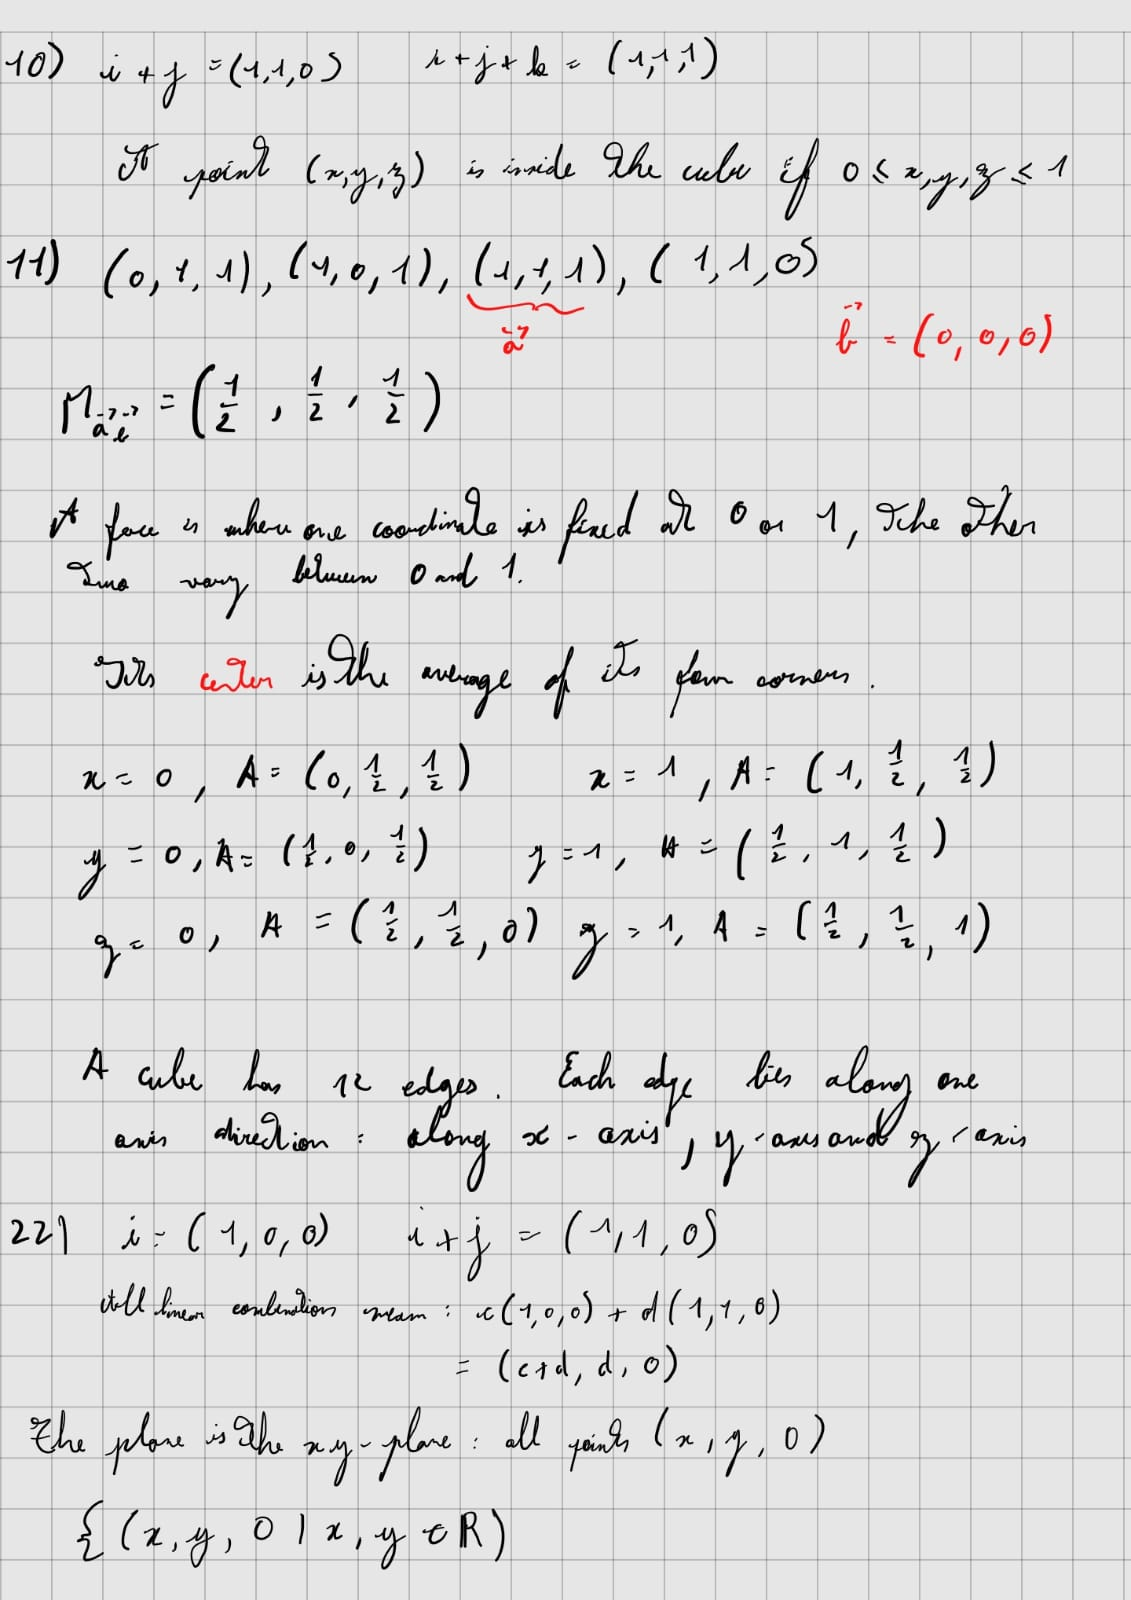 10) i + j = (1,1,0) i + j + k = (1,1,1)
A point (x,y,z) is inside the cube if 0 ≤ x,y,z ≤ 1
11) (0, 1, 1), (1, 0, 1), (1, 1, 1), ( 1, 1, 0)
a⃗ b⃗ = (0, 0, 0)
M a⃗ b⃗ = (1/2 , 1/2 , 1/2)
A face is where one coordinate is fixed at 0 or 1, the other
two vary between 0 and 1.
Its center is the average of its four corners.
x = 0 , A = (0, 1/2, 1/2) x = 1 , A = (1, 1/2, 1/2)
y = 0, A = (1/2, 0, 1/2) y = 1, A = (1/2, 1, 1/2)
z = 0, A = (1/2, 1/2, 0) z = 1, A = (1/2, 1/2, 1)
A cube has 12 edges. Each edge lies along one
axis direction : along x - axis , y - axis and z - axis
22) i = (1, 0, 0) i + j = (1, 1, 0)
All linear combinations mean : c(1,0,0) + d(1,1,0)
= (c+d, d, 0)
The plane is the xy-plane : all points (x, y, 0)
{ (x, y, 0 | x, y ∈ ℝ)